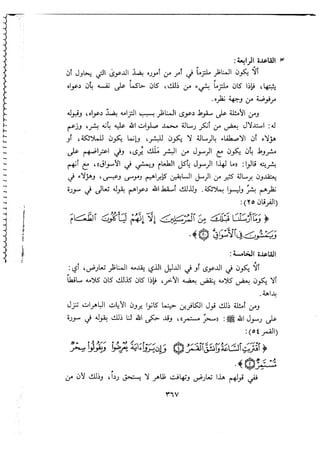 * القاعدة الرابعة:
ألا يكون المناظر ملتزماً في أمر من أموره بضد الدعوى التي يحاول أن
يثبتها، فإذا كان ملتزماً بشيء من ذلك، كان حاكماً على نفسه بأن دعواه
مرفوضة من وجهة نظره.
ومن الأمثلة على سقوط دعوى المناظر بسبب التزامه بضد دعواه، وقبوله
له: استدلال بعض من أنكر رسالة محمد صلوات الله عليه بأنه بشر، وزعم
هؤلاء أن الاصطفاء بالرسالة للبشر لا يكون، وإنما يكون للملائكة، أو
مشروط بأن يكون مع الرسول من البشر مَلَك يُرى، وفي اعتراضهم على
بشريته قالوا: «ما لهذا الرسول يأكل الطعام ويمشي في الأسواق»، مع أنهم
يعتقدون برسالة كثير من الرسل السابقين كإبراهيم وموسى وعيسى، وهؤلاء في
نظرهم بشرٌ وليسوا بملائكة. ولذلك أسقط الله دعواهم بقوله تعالى في سورة
(الفرقان ٢٥):
﴿ وَمَا أَرْسَلْنَا قَبْلَكَ مِنَ الْمُرْسَلِينَ إِلَّا إِنَّهُمْ لَيَأْكُلُونَ الطَّعَامَ
وَيَمْشُونَ فِي الْأَسْوَاقِ ﴾
القاعدة الخامسة:
ألا يكون في الدعوى أو في الدليل الذي يقدمه المناظر تعارض، أي:
ألا يكون بعض كلامه ينقض بعضه الآخر، فإذا كان كذلك كان كلامه ساقطاً
بداهة.
ومن أمثلة ذلك قول الكافرين حينما كانوا يرون الآيات الباهرات تنزل
على رسول الله ﷺ: «سحرٌ مستمر»، وقد حكى الله لنا ذلك بقوله في سورة
(القمر ٥٤):
﴿ اقْتَرَبَتِ السَّاعَةُ وَانْشَقَّ الْقَمَرُ ۝ وَإِنْ يَرَوْا آيَةً يُعْرِضُوا وَيَقُولُوا سِحْرٌ
مُسْتَمِرٌّ ﴾
ففي قولهم هذا تعارض وتهافت ظاهر لا يستحق رداً، وذلك لأن من
٣٦٧